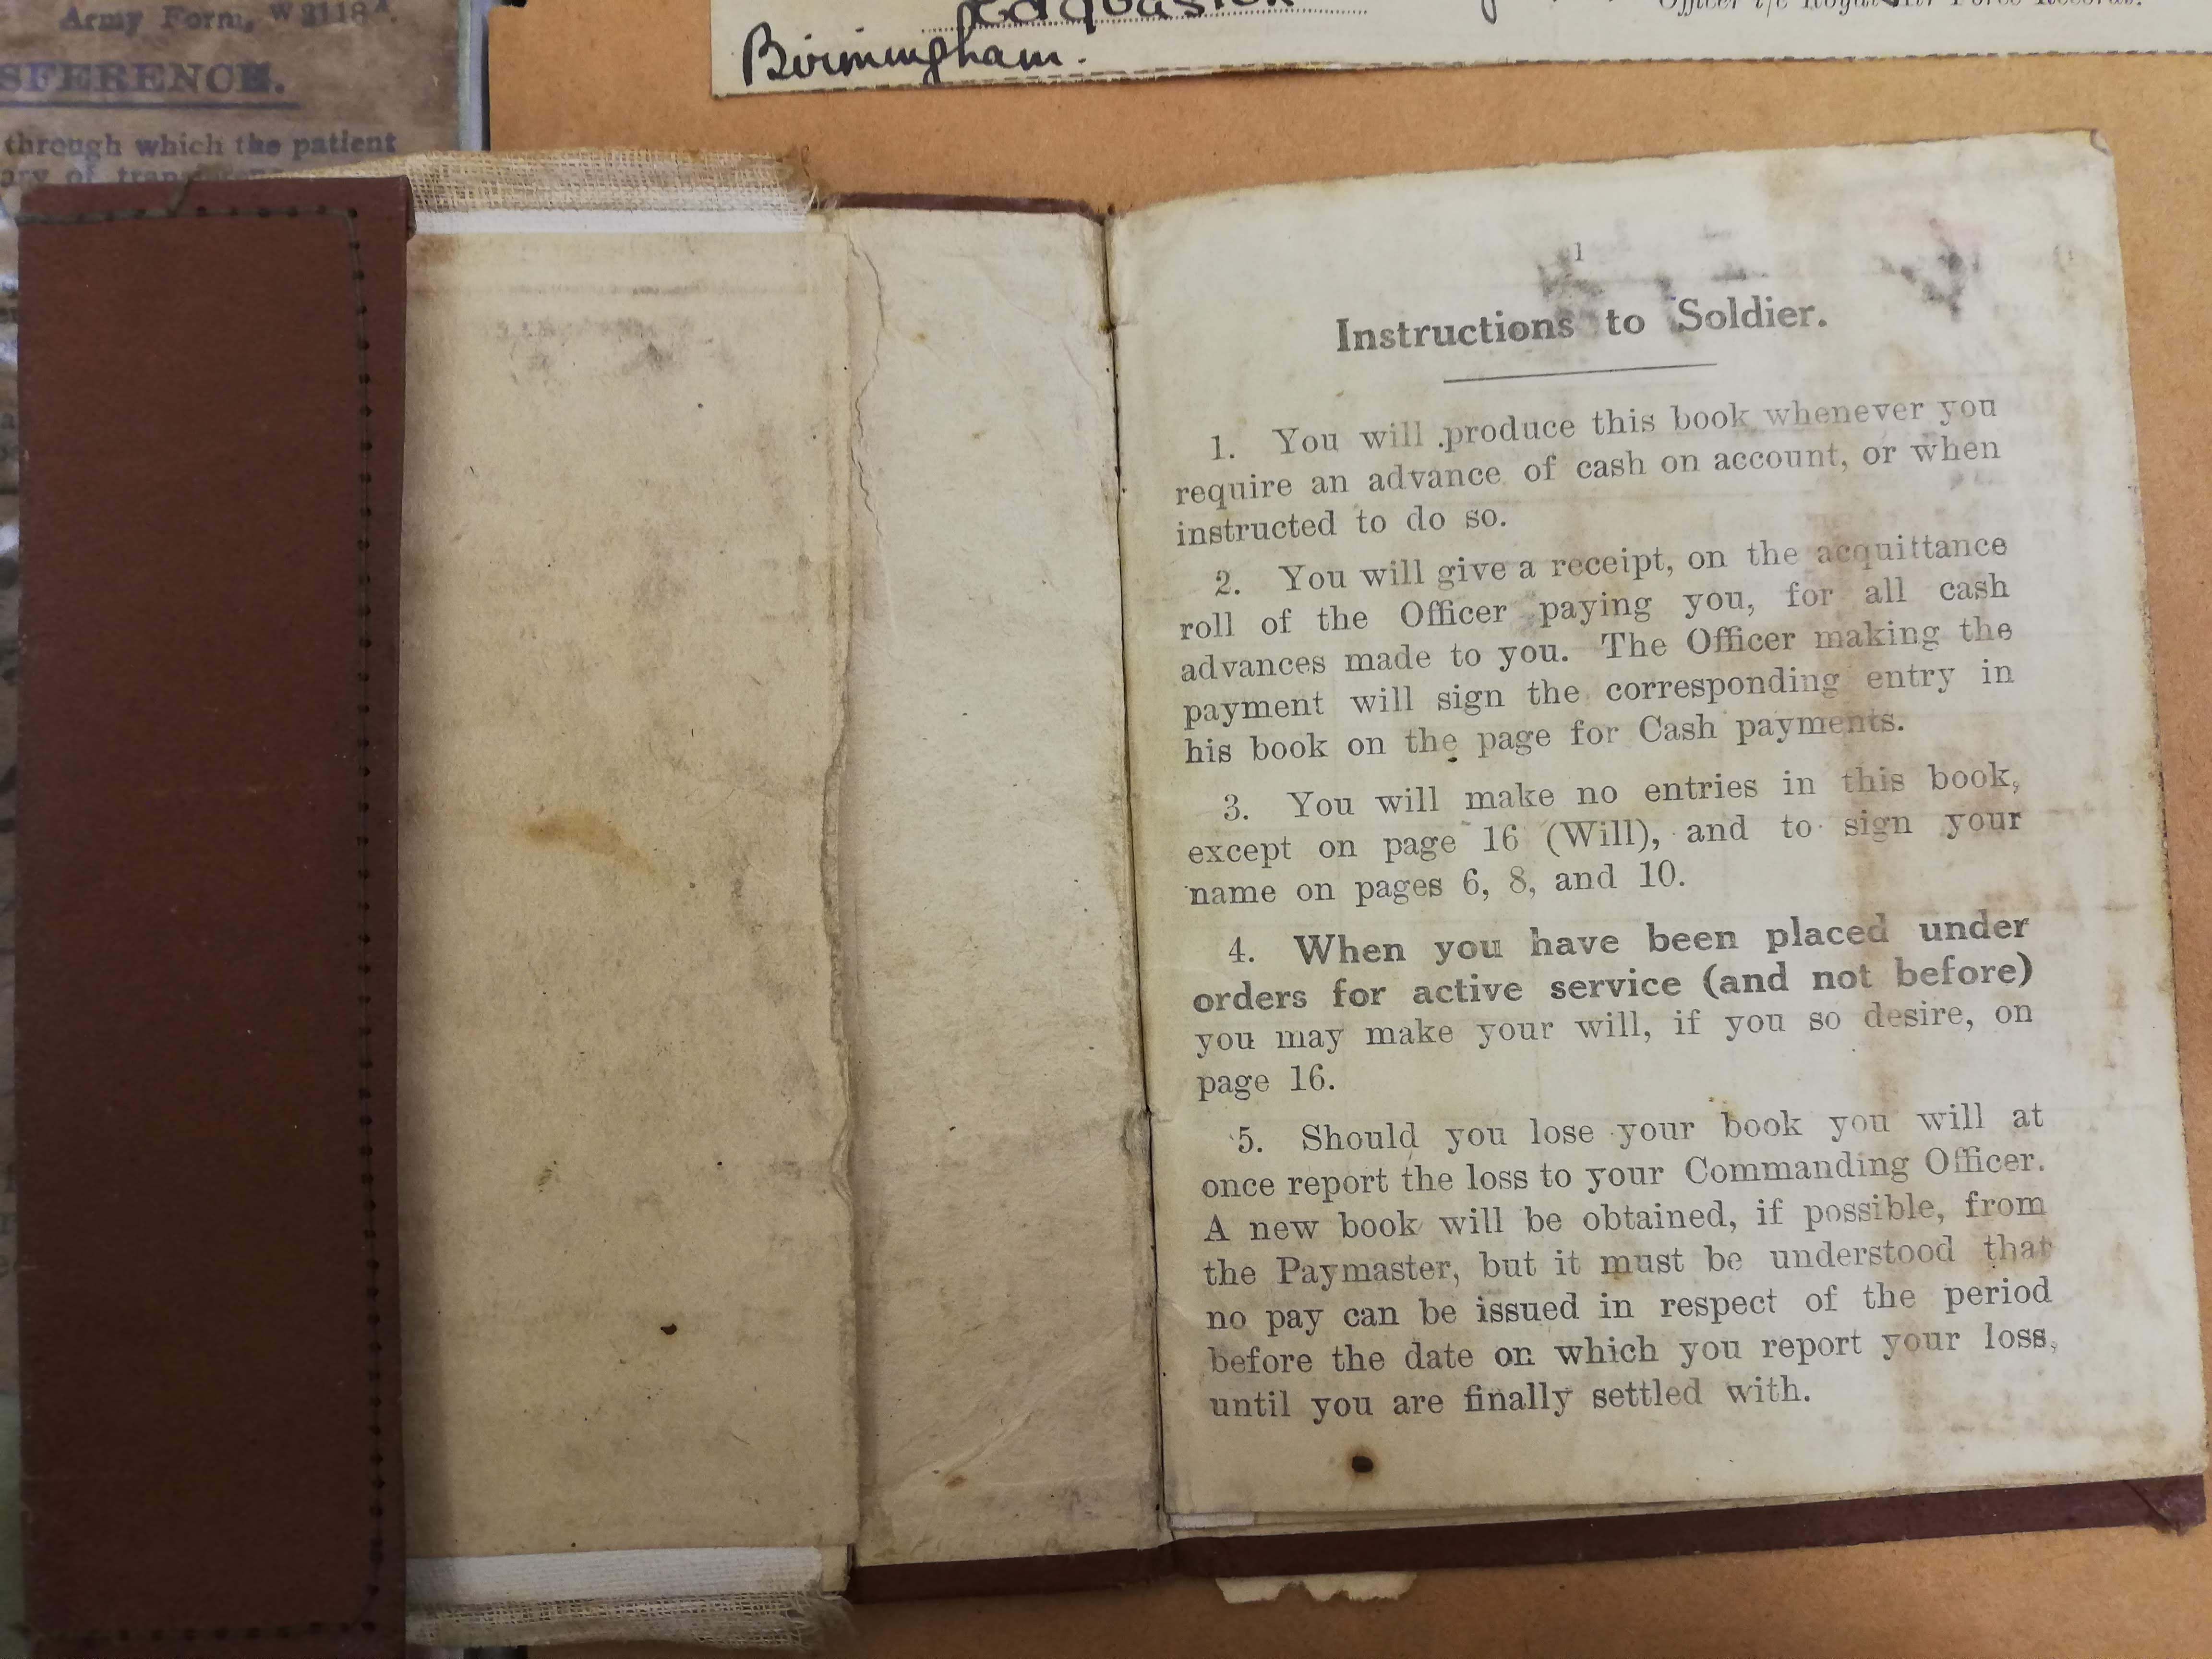 Army Form, W 3118A.
SFERENCE.
through which the patient
ary of
Birmingham.
Officer i/c Royal Air Force Records.
1
Instructions to Soldier.
1. You will produce this book whenever you
require an advance of cash on account, or when
instructed to do so.
2. You will give a receipt, on the acquittance
roll of the Officer paying you, for all cash
advances made to you. The Officer making the
payment will sign the corresponding entry in
his book on the page for Cash payments.
3. You will make no entries in this book,
except on page 16 (Will), and to sign your
name on pages 6, 8, and 10.
4. When you have been placed under
orders for active service (and not before)
you may make your will, if you so desire, on
page 16.
5. Should you lose your book you will at
once report the loss to your Commanding Officer.
A new book will be obtained, if possible, from
the Paymaster, but it must be understood that
no pay can be issued in respect of the period
before the date on which you report your loss,
until you are finally settled with.